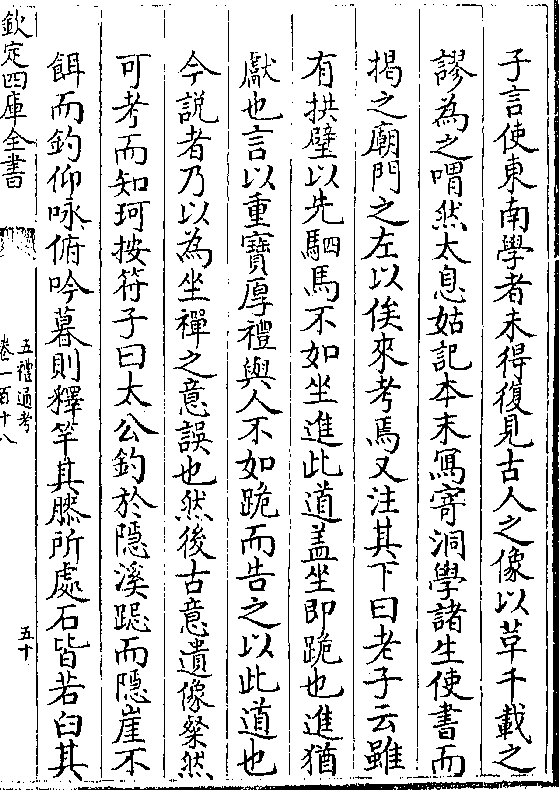 子言使東南學者未得復見古人之像以草千載之
謬為之喟然太息姑記本末寫寄洞學諸生使書而
掲之廟門之左以俟來考焉又注其下曰老子云雖
有拱璧以先駟馬不如坐進此道盖坐即跪也進猶
獻也言以重寶厚禮與人不如跪而告之以此道也
今説者乃以為坐禪之意誤也然後古意遺像粲然
可考而知珂按符子曰太公釣於隱溪跽而隱崖不
餌而釣仰咏俯吟暮則釋竿其膝所處石皆若臼其
欽定四庫全書
五禮通考
卷一百十八
五十